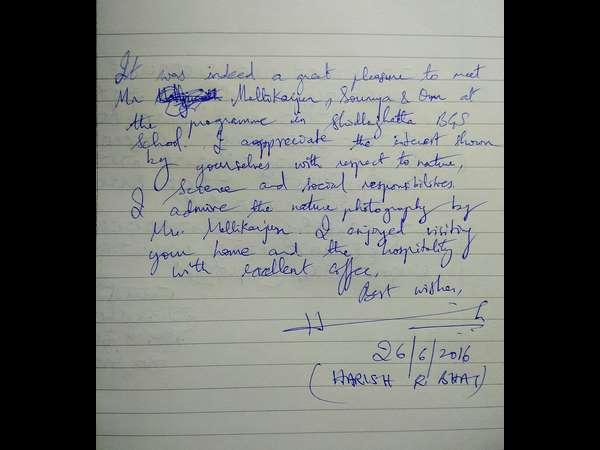 It was indeed a great pleasure to meet
Mr Mallikarjun, Soumya & Om at
the programme in Shidlaghatta BGS
School. I appreciate the interest shown
by yourselves with respect to nature,
science and social responsibilities.
I admire the nature photography by
Mr. Mallikarjun. I enjoyed visiting
your home and the hospitality
with excellent coffee.
Best wishes,
26/6/2016
(HARISH R BHAT)